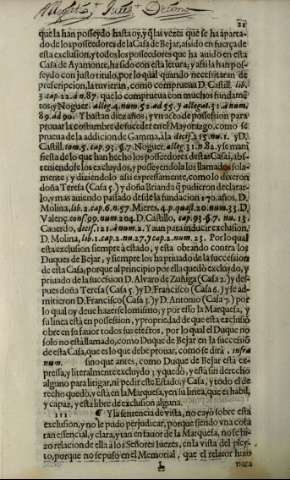 21
que la han posseydo hasta oy, y q̃ las vezes que se ha aparta-
do de los possedores de la Casa de Bejar, a sido en fuerça de
esta exclusion, y todos los possedores que ha auido en esta
Casa de Ayamonte, ha sido con esta letura, y assi la han pos-
seydo con justo titulo, por lo qual quando necessitaran de
prescripcion, la tuuieran, como comprueua D. Castill. lib.
3. cap. 22. àn. 87. que lo comprueua con muchos fundamē-
tos, y Noguer. alleg. 4. num. 52. ad 55. y allegat. 31. à num.
89. ad 90. Y bastan diez años, y vn acto de possession para
prouar la costumbre de suceder en el Mayorazgo, como se
prueua de la addicion de Gamma, ala decis. 25. nu. 1. y D.
Castill. tom. 5. cap. 93. §. 7. Noguer. alleg. 31. n. 82. y se mani
fiesta de lo que han hecho los possedores destas Casas, abs-
teniendose los excluydos, y posseyendola los llamados sola-
mente; y diziendo assi expressamente, como lo dixeron
doña Teresa (Casa 5.) y doña Brianda q̃ pudieron declarar-
lo, y mas auiendo passado desde la fundacion 170. años, D.
Molina, lib. 2. cap. 6. n. 57. Mieres, 4. p. quæst. 20. num. 33. D.
Valenç. cons. 99. num. 204. D. Castillo, cap. 93. §. 7. nu. 13.
Cauerdo, decis. 121. à num. 2. Y aun para inducir exclusion,
D. Molina, lib. 1. cap. 2. num. 27. y cap. 2. num. 23. Por lo qual
esta exclusion siempre à estado, y esta obrando contra los
Duques de Bejar, y siempre los ha priuado de la succession
de esta Casa, porque al principio por ella quedò excluydo, y
priuado de la sucession D. Aluaro de Zuñiga (Casa 2.) y des-
pues doña Teresa (Casa 5.) y D. Francisco (Casa 6.) y se ad-
mitieron D. Francisco (Casa 3.) y D. Antonio (Casa 7.) por
lo qual oy deue hazerse lo mismo, y por esso la Marquesa, y
su linea està en possession, y propriedad de que esta exclusiõ
obre en su fauor todos sus efectos, por lo qual el Duque no
solo no està llamado, como Duque de Bejar en la succession
de esta Casa, que es lo que debe prouar, como se dirà, infra
num. sino que antes, como Duque de Bejar està ex-
pressa, y literalmente excluydo, y quedò, y està sin derecho
alguno para litigar, ni pedir este Estado, y Casa, y todo el de-
recho quedò, y està en la Marquesa, y en su linea, que es habil,
y capaz, y està libre de exclusion alguna.
111 ¶ Y la sentencia de vista, no cayò sobre esta
exclusion, y no le pudo perjudicar, porque siendo vna cosa
tan essencial, y clara, y tan en fauor de la Marquesa, no se hi-
zo relacion de ella à los Señores Iuezes, en la vista del pley-
to, porque no se puso en el Memorial, que el relator hizo
h nunca